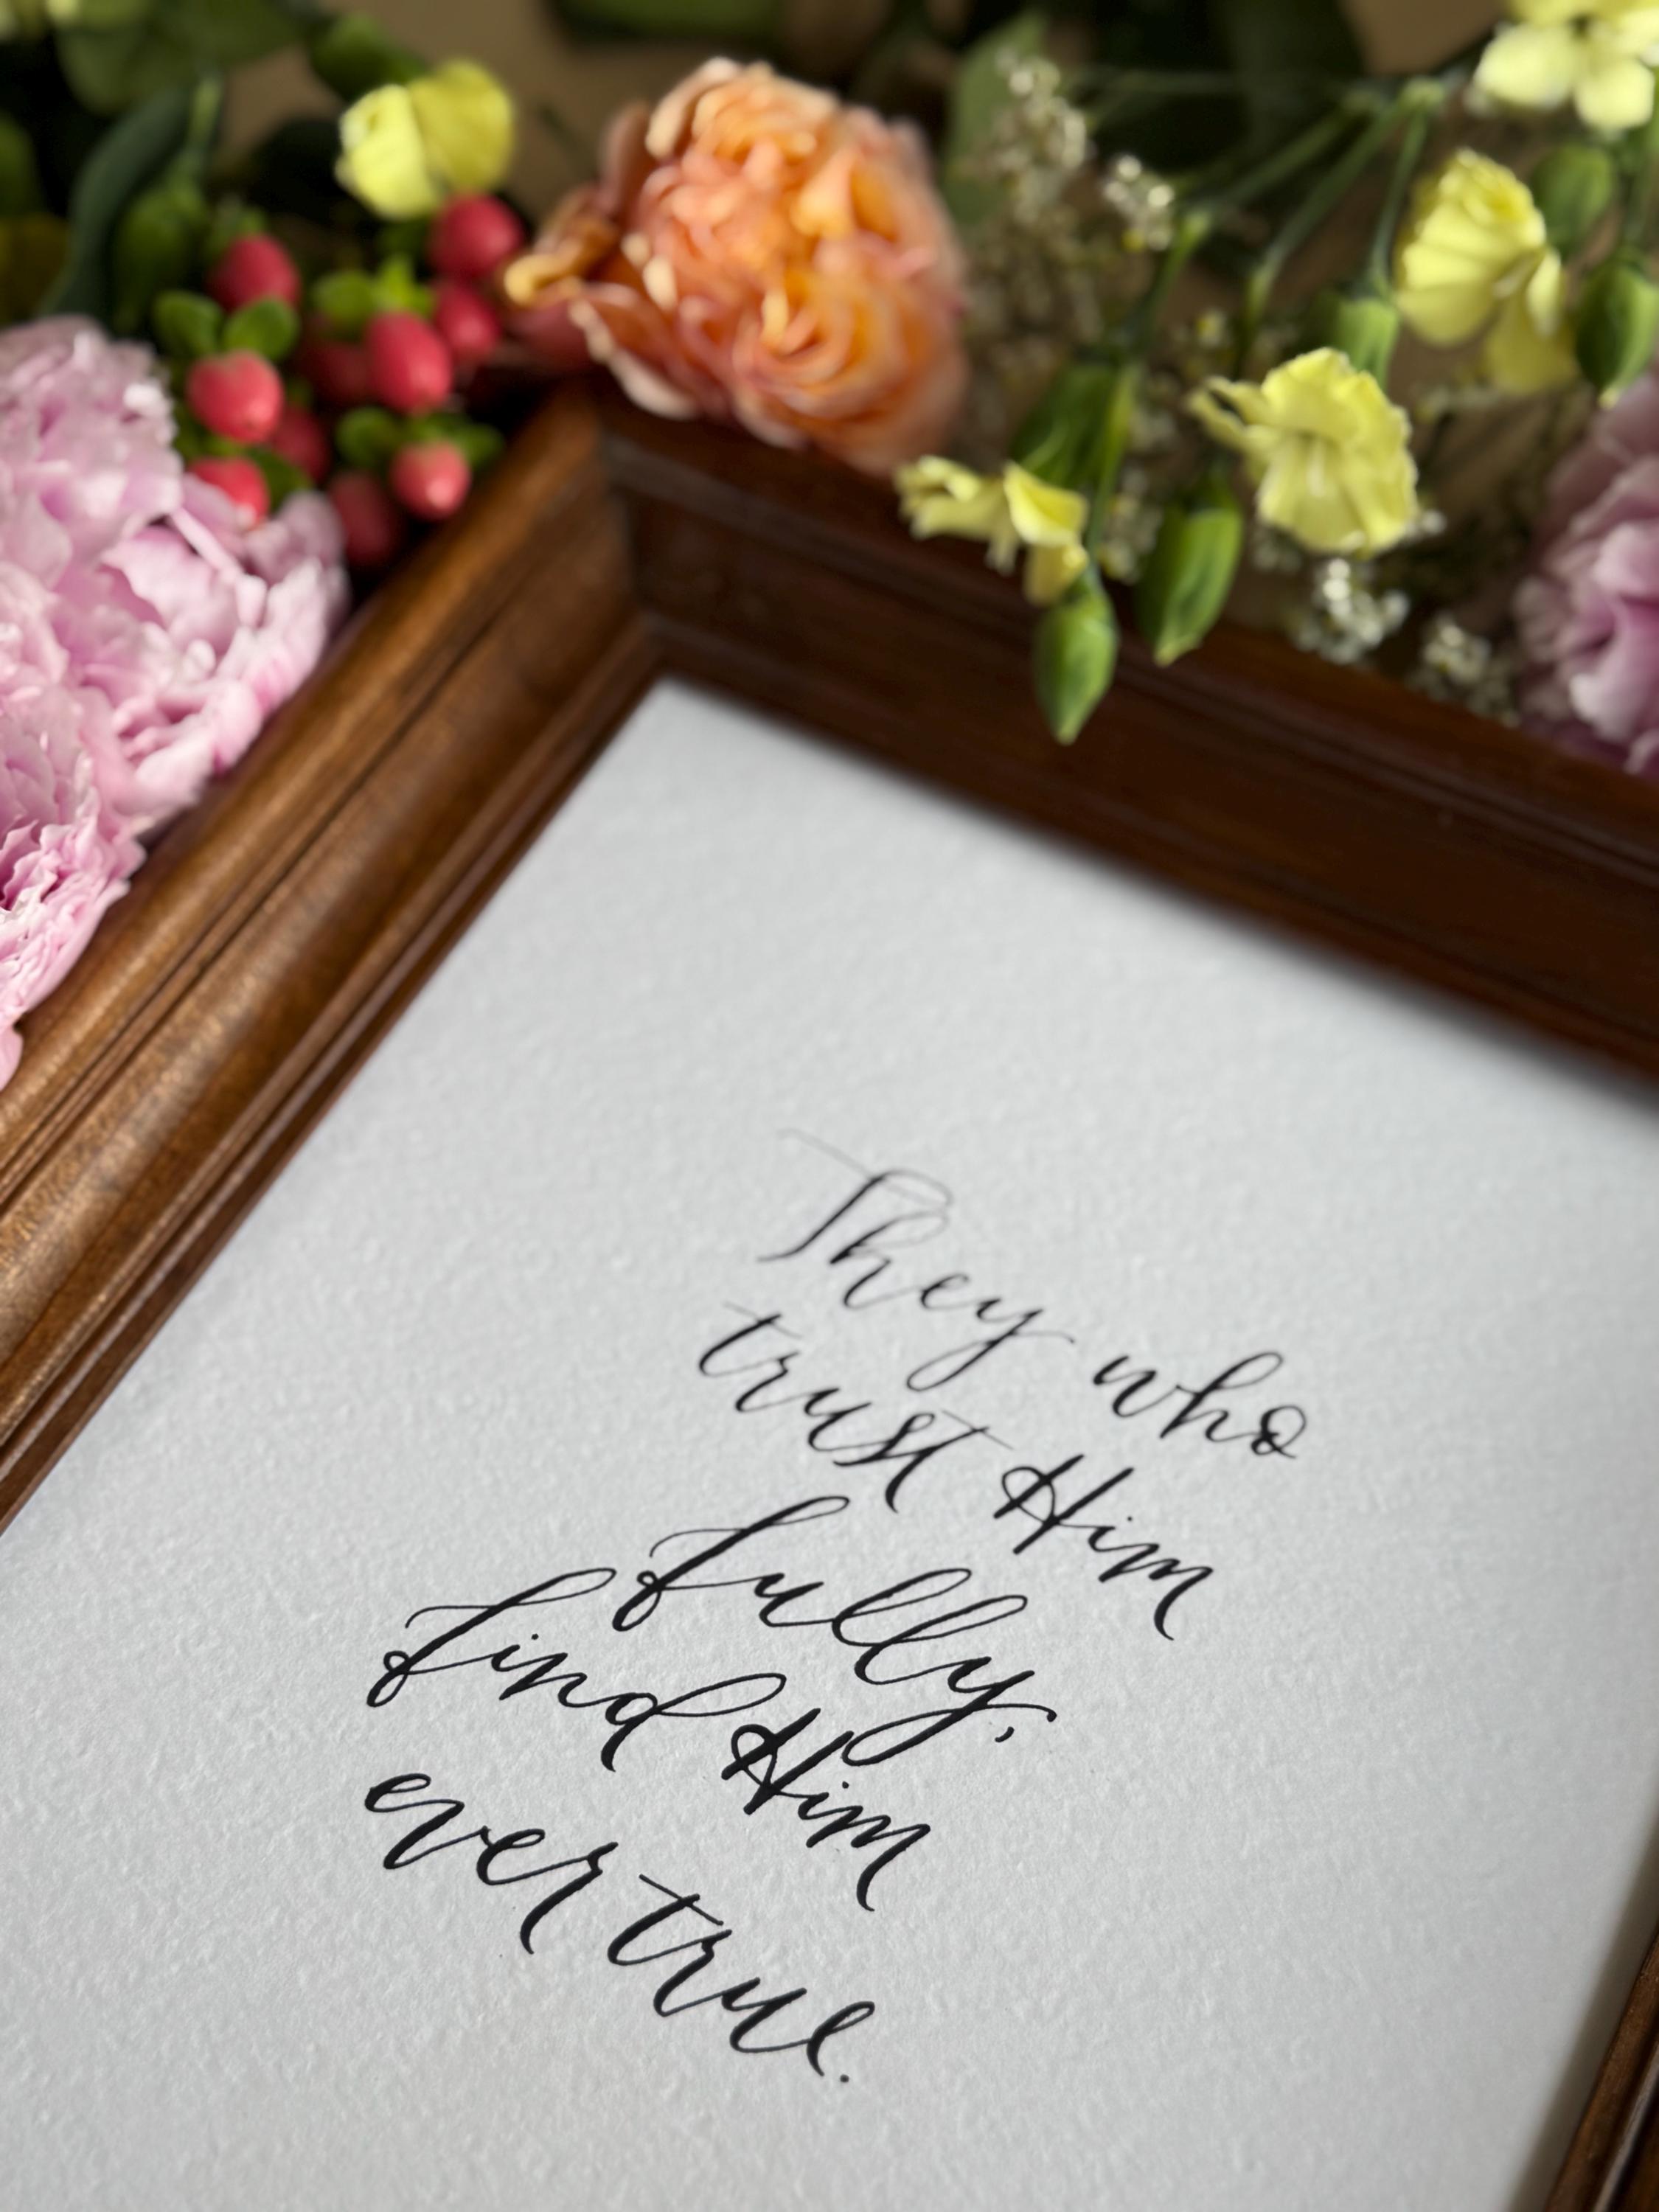 They who
trust Him
fully,
find Him
ever true.